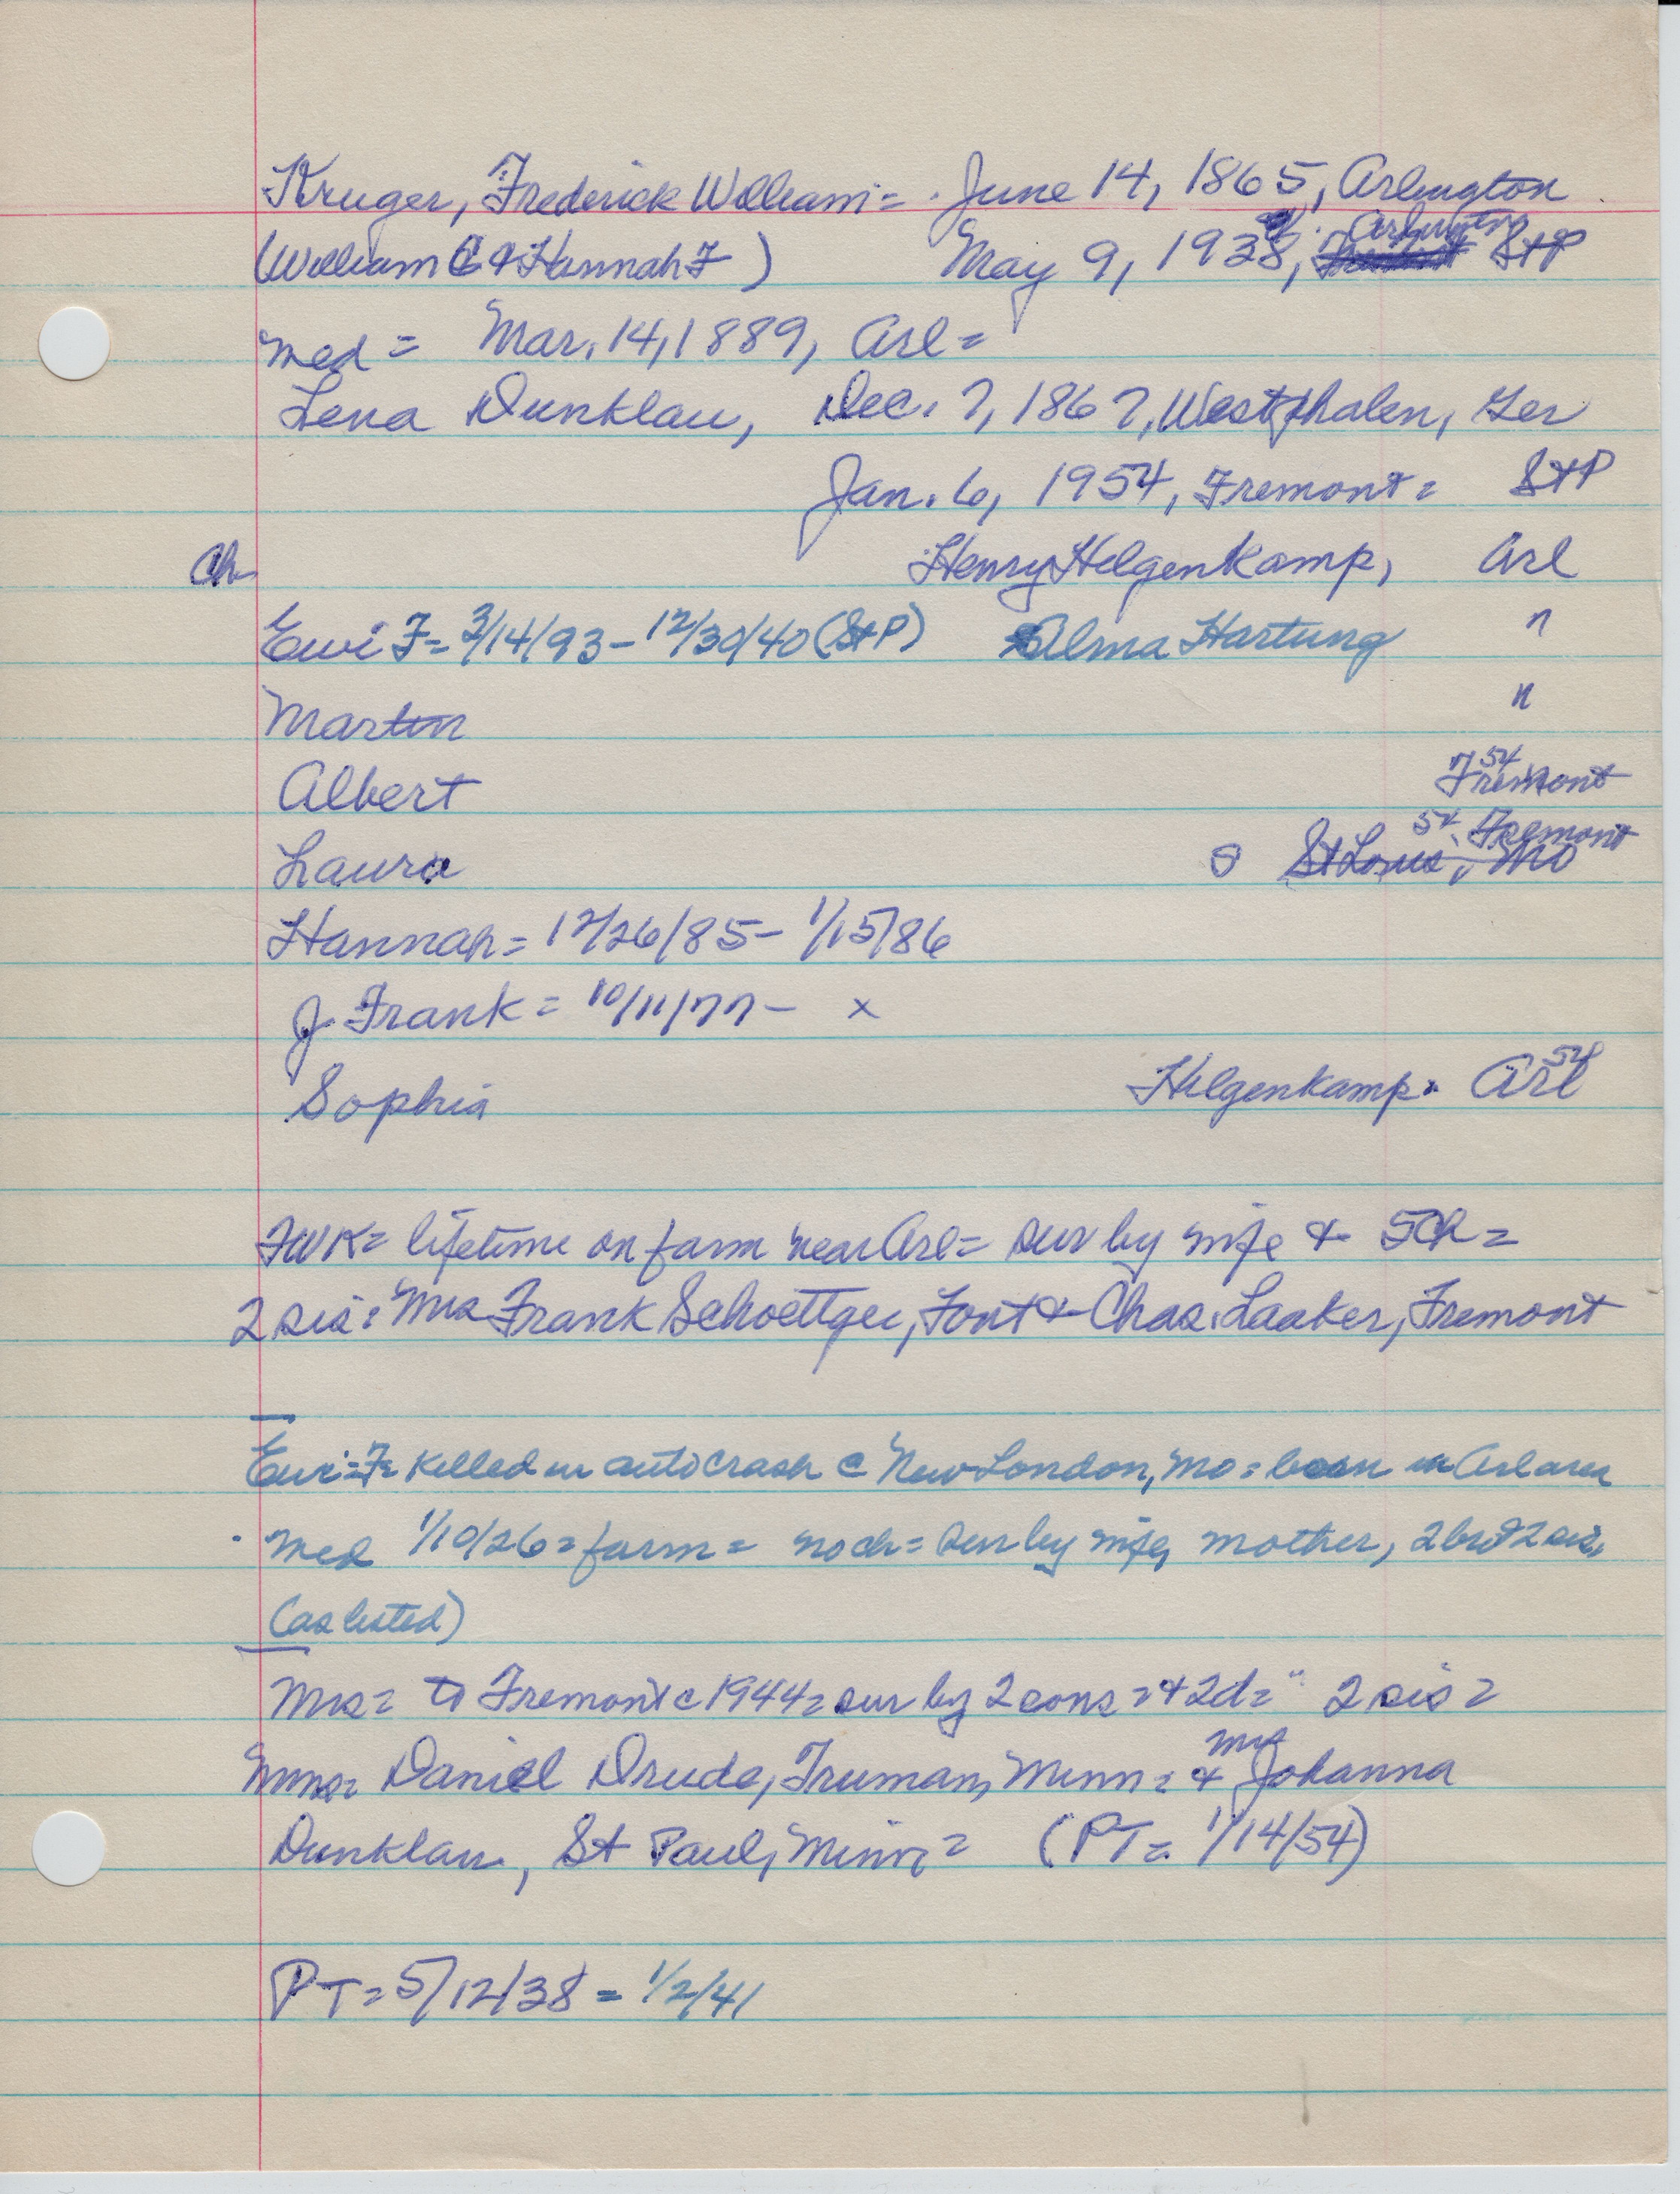 Kruger, Frederick William = June 14, 1865, Arlington
(William C & Hannah F) May 9, 1938, Arlington StP
med = Mar. 14, 1889, Arl =
Lena Dunklau, Dec. 7, 1867, Westphalen, Ger
Jan. 6, 1954, Fremont = StP
Ch Henry Helgenkamp, Arl
Ewi F = 3/14/93 - 12/30/40 (StP) Alma Hartung "
Martin "
Albert 54 Fremont
Laura 54 Fremont St Louis, Mo
Hannah = 12/26/85 - 1/15/86
J. Frank = 10/11/77 - x
Sophia Helgenkamp. Arl 54
FWK = lifetime on farm near Arl = sur by wife & 5 Ch =
2 sis: Mrs Frank Schoettger, Font & Chas. Laaker, Fremont
Ewi F = killed in auto crash c New London, Mo = born in Arl area
med 1/10/26 = farm = no ch = sur by wife, mother, 2 br & 2 sis,
(as listed)
Mrs = to Fremont c 1944 = sur by 2 sons = & 2d = " 2 sis =
Mms = Daniel Drude, Truman, Minn = & Mrs Johanna
Dunklau, St Paul, Minn = (PT = 1/14/54)
PT = 5/12/38 = 1/2/41